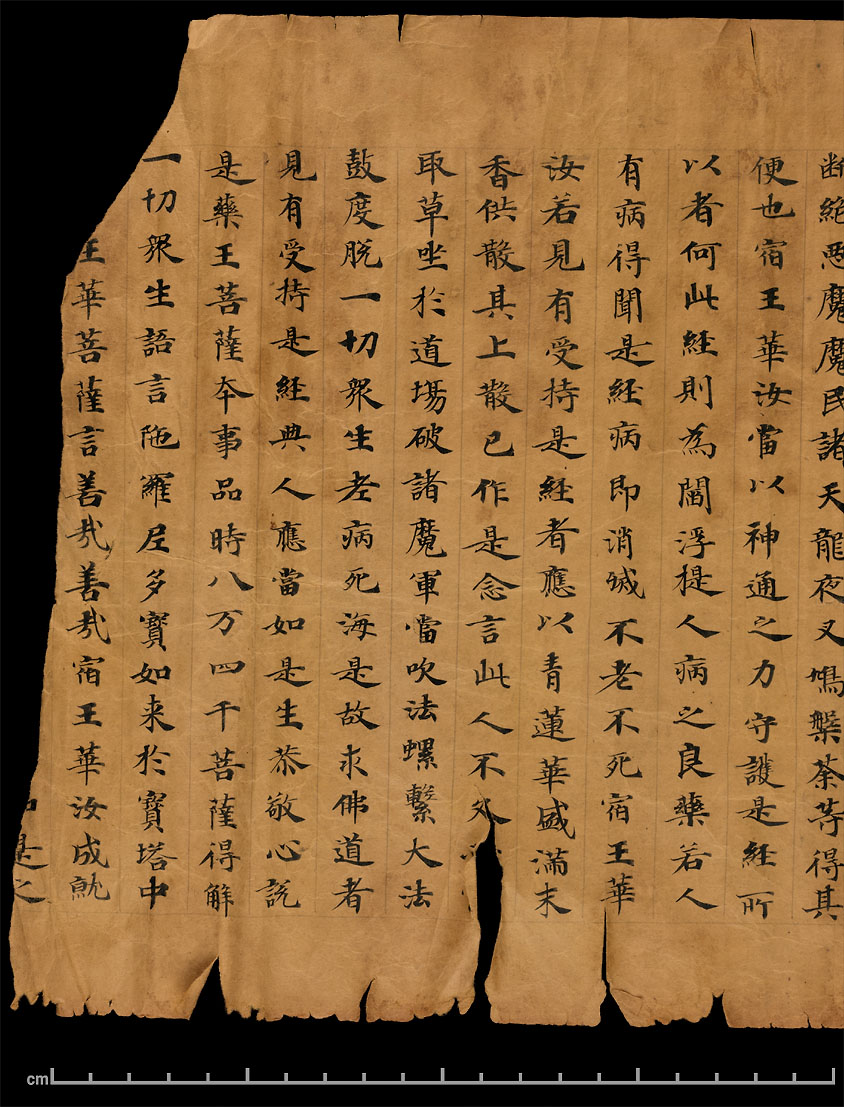 断絶惡魔魔民諸天龍夜叉鳩槃荼等得其
便也宿王華汝當以神通之力守護是経所
以者何此経則為閻浮提人病之良藥若人
有病得聞是経病即消滅不老不死宿王華
汝若見有受持是経者應以青蓮華盛滿末
香供散其上散已作是念言此人不久
取草坐於道場破諸魔軍當吹法螺繫大法
鼓度脫一切衆生老病死海是故求佛道者
見有受持是経典人應當如是生恭敬心說
是藥王菩薩本事品時八万四千菩薩得解
一切衆生語言陁羅尼多寶如来於寶塔中
王華菩薩言善哉善哉宿王華汝成就
是之